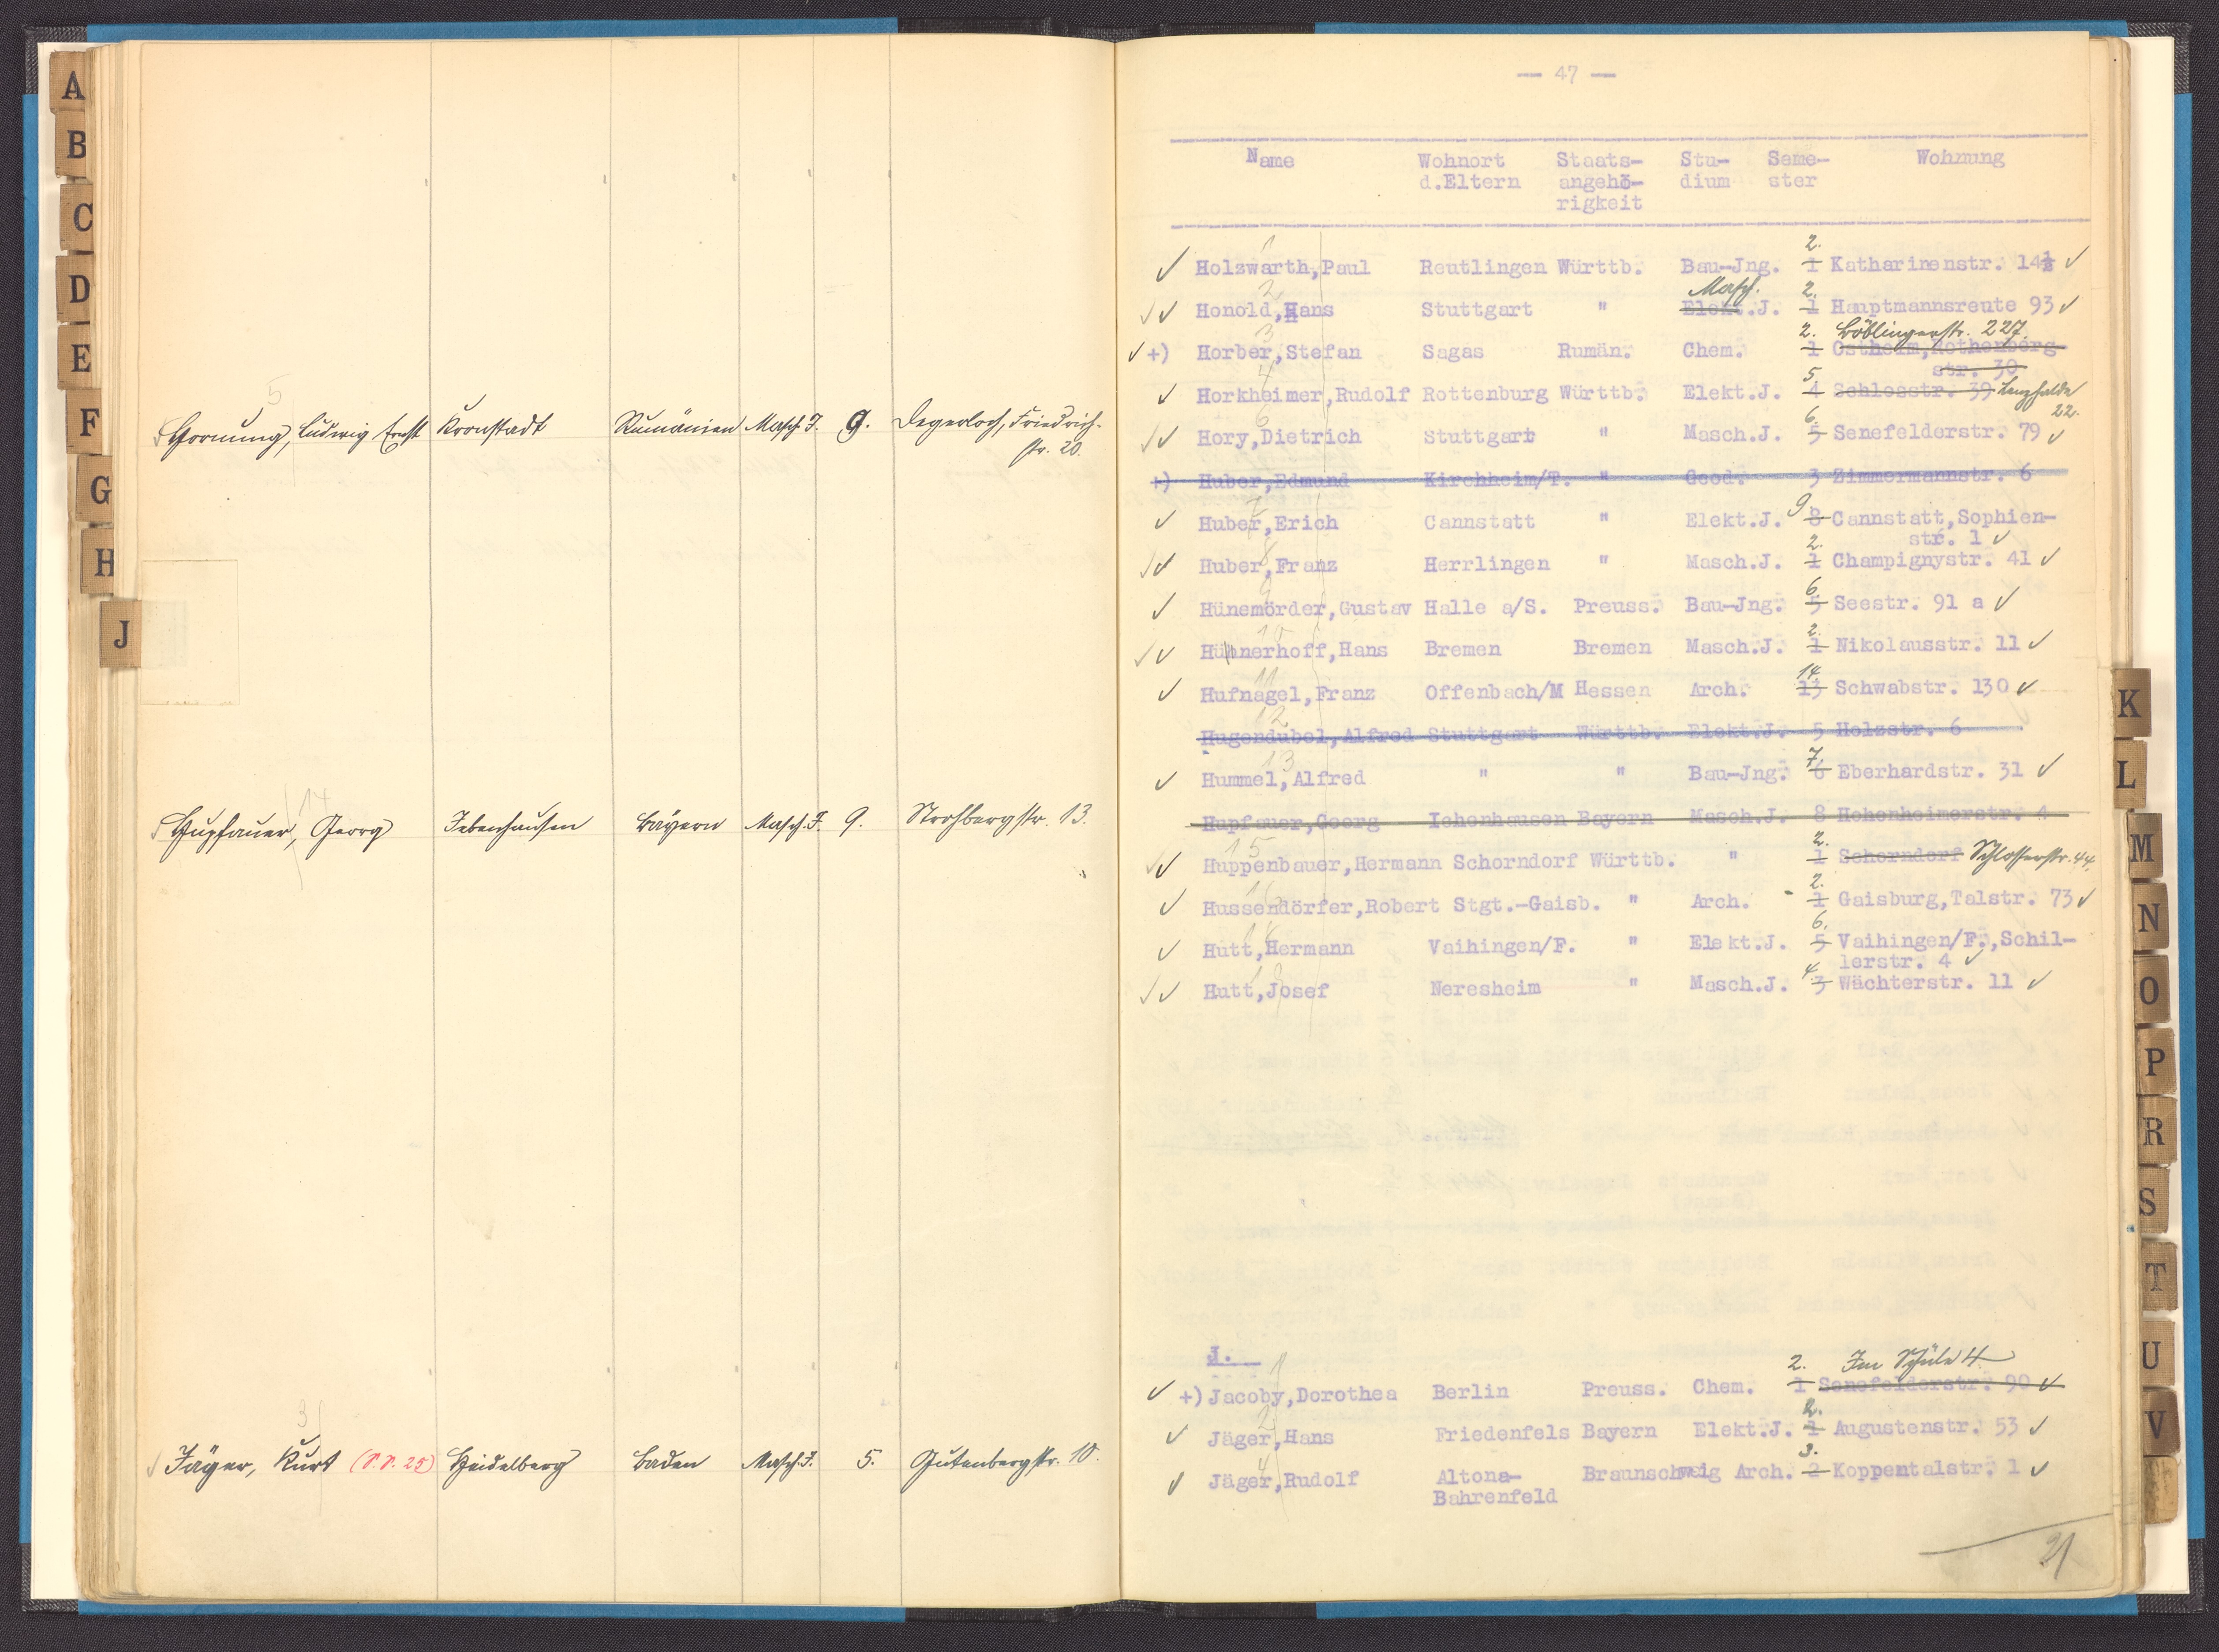 A
B
C
D
E
F
G
H
J
5
Hornung, Ludwig Ernst Kronstadt Rumänien Masch. J. 9. Degerloch, Friedrich-
str. 20.
14
Hupfauer, Georg Bayern Masch. J. 9. Strohbergstr. 13.
3
Jäger, Kurt (S.S. 25) Heidelberg Baden Masch. J. 5. Gutenbergstr. 10.
— 47 —
Name Wohnort Staats- Stu- Seme- Wohnung
d.Eltern angehö- dium ster
rigkeit
1 2.
✓ Holzwarth,Paul Reutlingen Württb. Bau-Jng. 1 Katharinenstr. 14½ ✓
2 Masch. 2.
✓✓ Honold,Hans Stuttgart " Elekt.J. 1 Hauptmannsreute 93 ✓
3 2. Böblingerstr. 227.
✓ +) Horber,Stefan Sagas Rumän. Chem. 1 Ostheim,Rothenberg-
str. 30
4 5
✓ Horkheimer,Rudolf Rottenburg Württb. Elekt.J. 4 Schlosstr. 39 Lenzhalde
22.
6 6.
✓✓ Hory,Dietrich Stuttgart " Masch.J. 5 Senefelderstr. 79 ✓
+) Huber,Edmund Kirchheim/T. " Geod. 3 Zimmermannstr. 6
7 9
✓ Huber,Erich Cannstatt " Elekt.J. 8 Cannstatt,Sophien-
str. 1 ✓
8 2.
✓✓ Huber,Franz Herrlingen " Masch.J. 1 Champignystr. 41 ✓
9 6.
✓ Hünemörder,Gustav Halle a/S. Preuss. Bau-Jng. 5 Seestr. 91 a ✓
10 2.
✓✓ Hünnerhoff,Hans Bremen Bremen Masch.J. 1 Nikolausstr. 11 ✓
11 14.
✓ Hufnagel,Franz Offenbach/M Hessen Arch. 13 Schwabstr. 130 ✓
12
Hugendubel,Alfred Stuttgart Württb. Elekt.J. 5 Holzstr. 6
13 7.
✓ Hummel,Alfred " " Bau-Jng. 6 Eberhardstr. 31 ✓
Hupfauer,Georg Ichenhausen Bayern Masch.J. 8 Hohenheimerstr. 4
15 2.
✓✓ Huppenbauer,Hermann Schorndorf Württb. " 1 Schorndorf Schlosserstr. 44.
16 2.
✓ Hussendörfer,Robert Stgt.-Gaisb. " Arch. 1 Gaisburg,Talstr. 73 ✓
6.
✓ Hutt,Hermann Vaihingen/F. " Elekt.J. 5 Vaihingen/F.,Schil-
lerstr. 4 ✓
18 4.
✓✓ Hutt,Josef Neresheim " Masch.J. 3 Wächterstr. 11 ✓
J.
1 2. Im Schüle 4
✓ +) Jacoby,Dorothea Berlin Preuss. Chem. 1 Senefelderstr. 90 ✓
2 2.
✓ Jäger,Hans Friedenfels Bayern Elekt.J. 1 Augustenstr. 53 ✓
4 3.
✓ Jäger,Rudolf Altona- Braunschweig Arch. 2 Koppentalstr. 1 ✓
Bahrenfeld
21
K
L
M
N
O
P
R
S
T
U
V